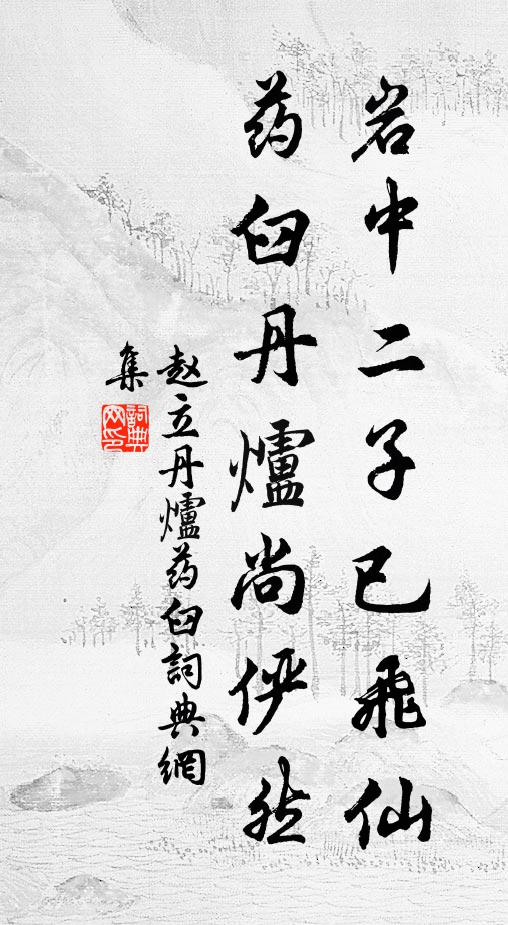 岩中二子已飛仙
药臼丹爐尚俨然
赵立丹爐药臼詞典網
集
詞典
网印